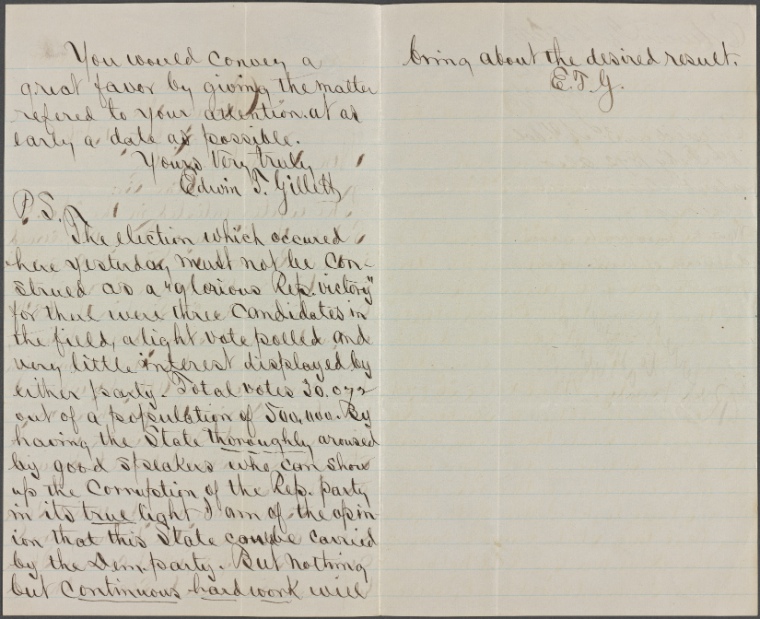 You would convey a
great favor by giving the matter
refered to your attention at as
early a date as possible.
Yours Very truly,
Edwin T. Gillett
P.S.
The election which occured
here yesterday, must not be con-
strued as a "glorious Rep. victory"
for there were three candidates in
the field, a light vote polled and
very little interest displayed by
either party. Total votes 30.072
out of a population of 500,000. By
having the State thoroughly aroused
by good speakers who can show
up the Corruption of the Rep. party
in its true light I am of the opin-
ion that this State can be carried
by the Dem. party. But nothing
but continuous hard work will
bring about the desired result.
E.T.G.